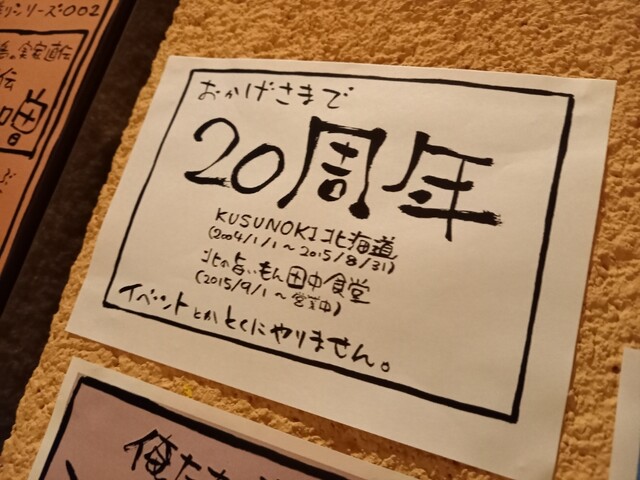 おかげさまで
20周年
KUSUNOKI北海道
(2004/1/1〜2015/8/31)
北の旨いもん田中食堂
(2015/9/1〜営業中)
イベントとかとくにやりません。
シリーズ002
実家直伝
伝
俺たち